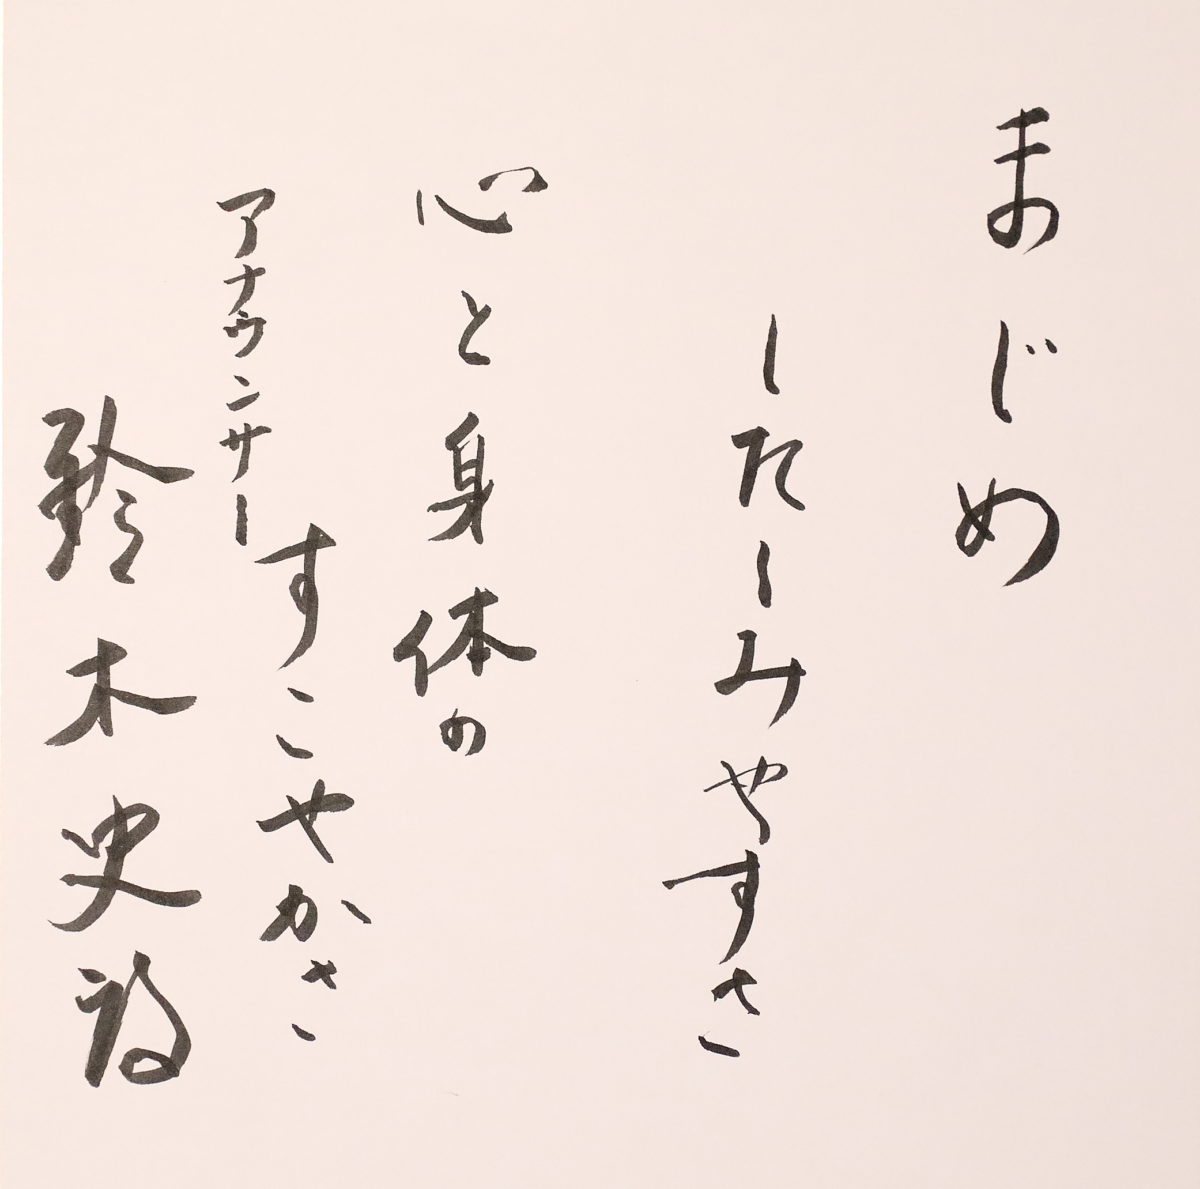 まじめ
したしみやすさ
心と身体の
すこやかさ
アナウンサー
鈴木史朗